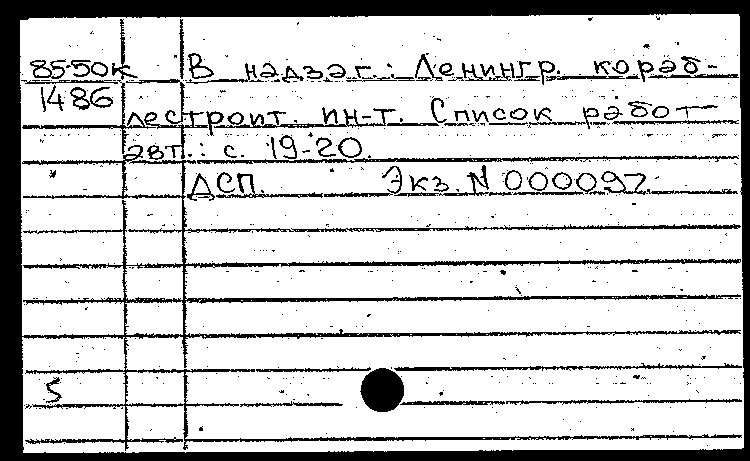 85-50к В надзаг.: Ленингр. кораб-
1486 лестроит. ин-т. Список работ
авт.: с. 19-20.
ДСП. Экз. N 000097.
5